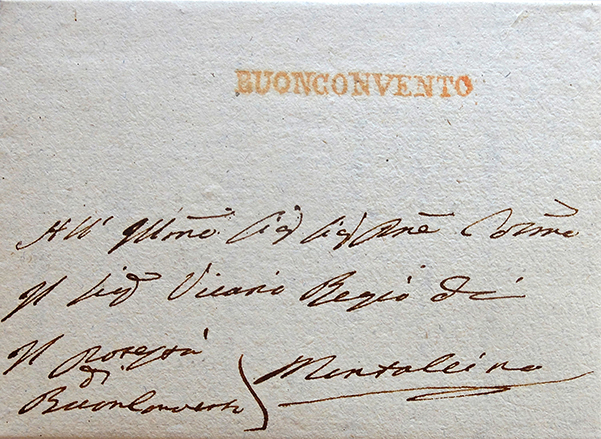 BUONCONVENTO
All' Illmo Sig Sig Pne Colmo
Il Sig Vicario Regio di
Il Potestà
di
Buonconvento
Montalcino